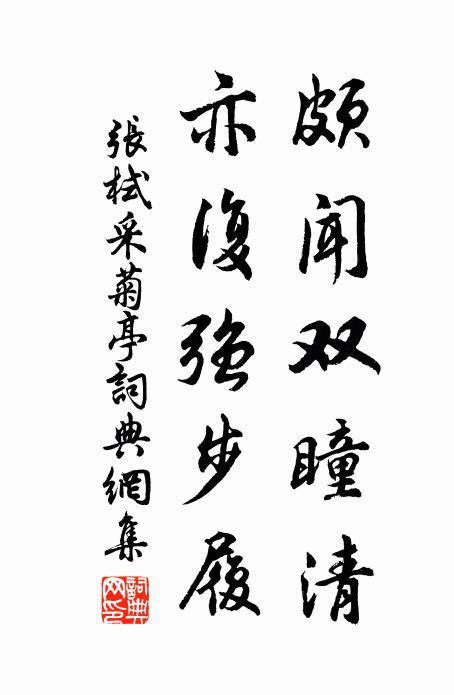 颇闻双瞳清
亦復强步履
張栻采菊亭詞典網集
詞典网印